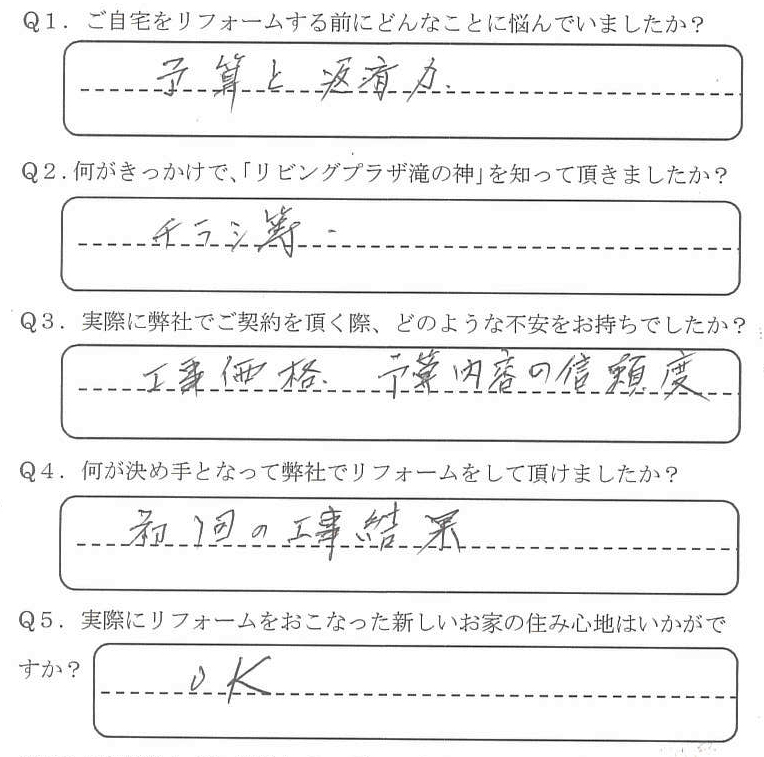 Q1．ご自宅をリフォームする前にどんなことに悩んでいましたか？
予算と返済力．
Q2．何がきっかけで、「リビングプラザ滝の神」を知って頂きましたか？
チラシ等
Q3．実際に弊社でご契約を頂く際、どのような不安をお持ちでしたか？
工事価格、予算内容の信頼度
Q4．何が決め手となって弊社でリフォームをして頂けましたか？
初回の工事結果
Q5．実際にリフォームをおこなった新しいお家の住み心地はいかがで
すか？
OK